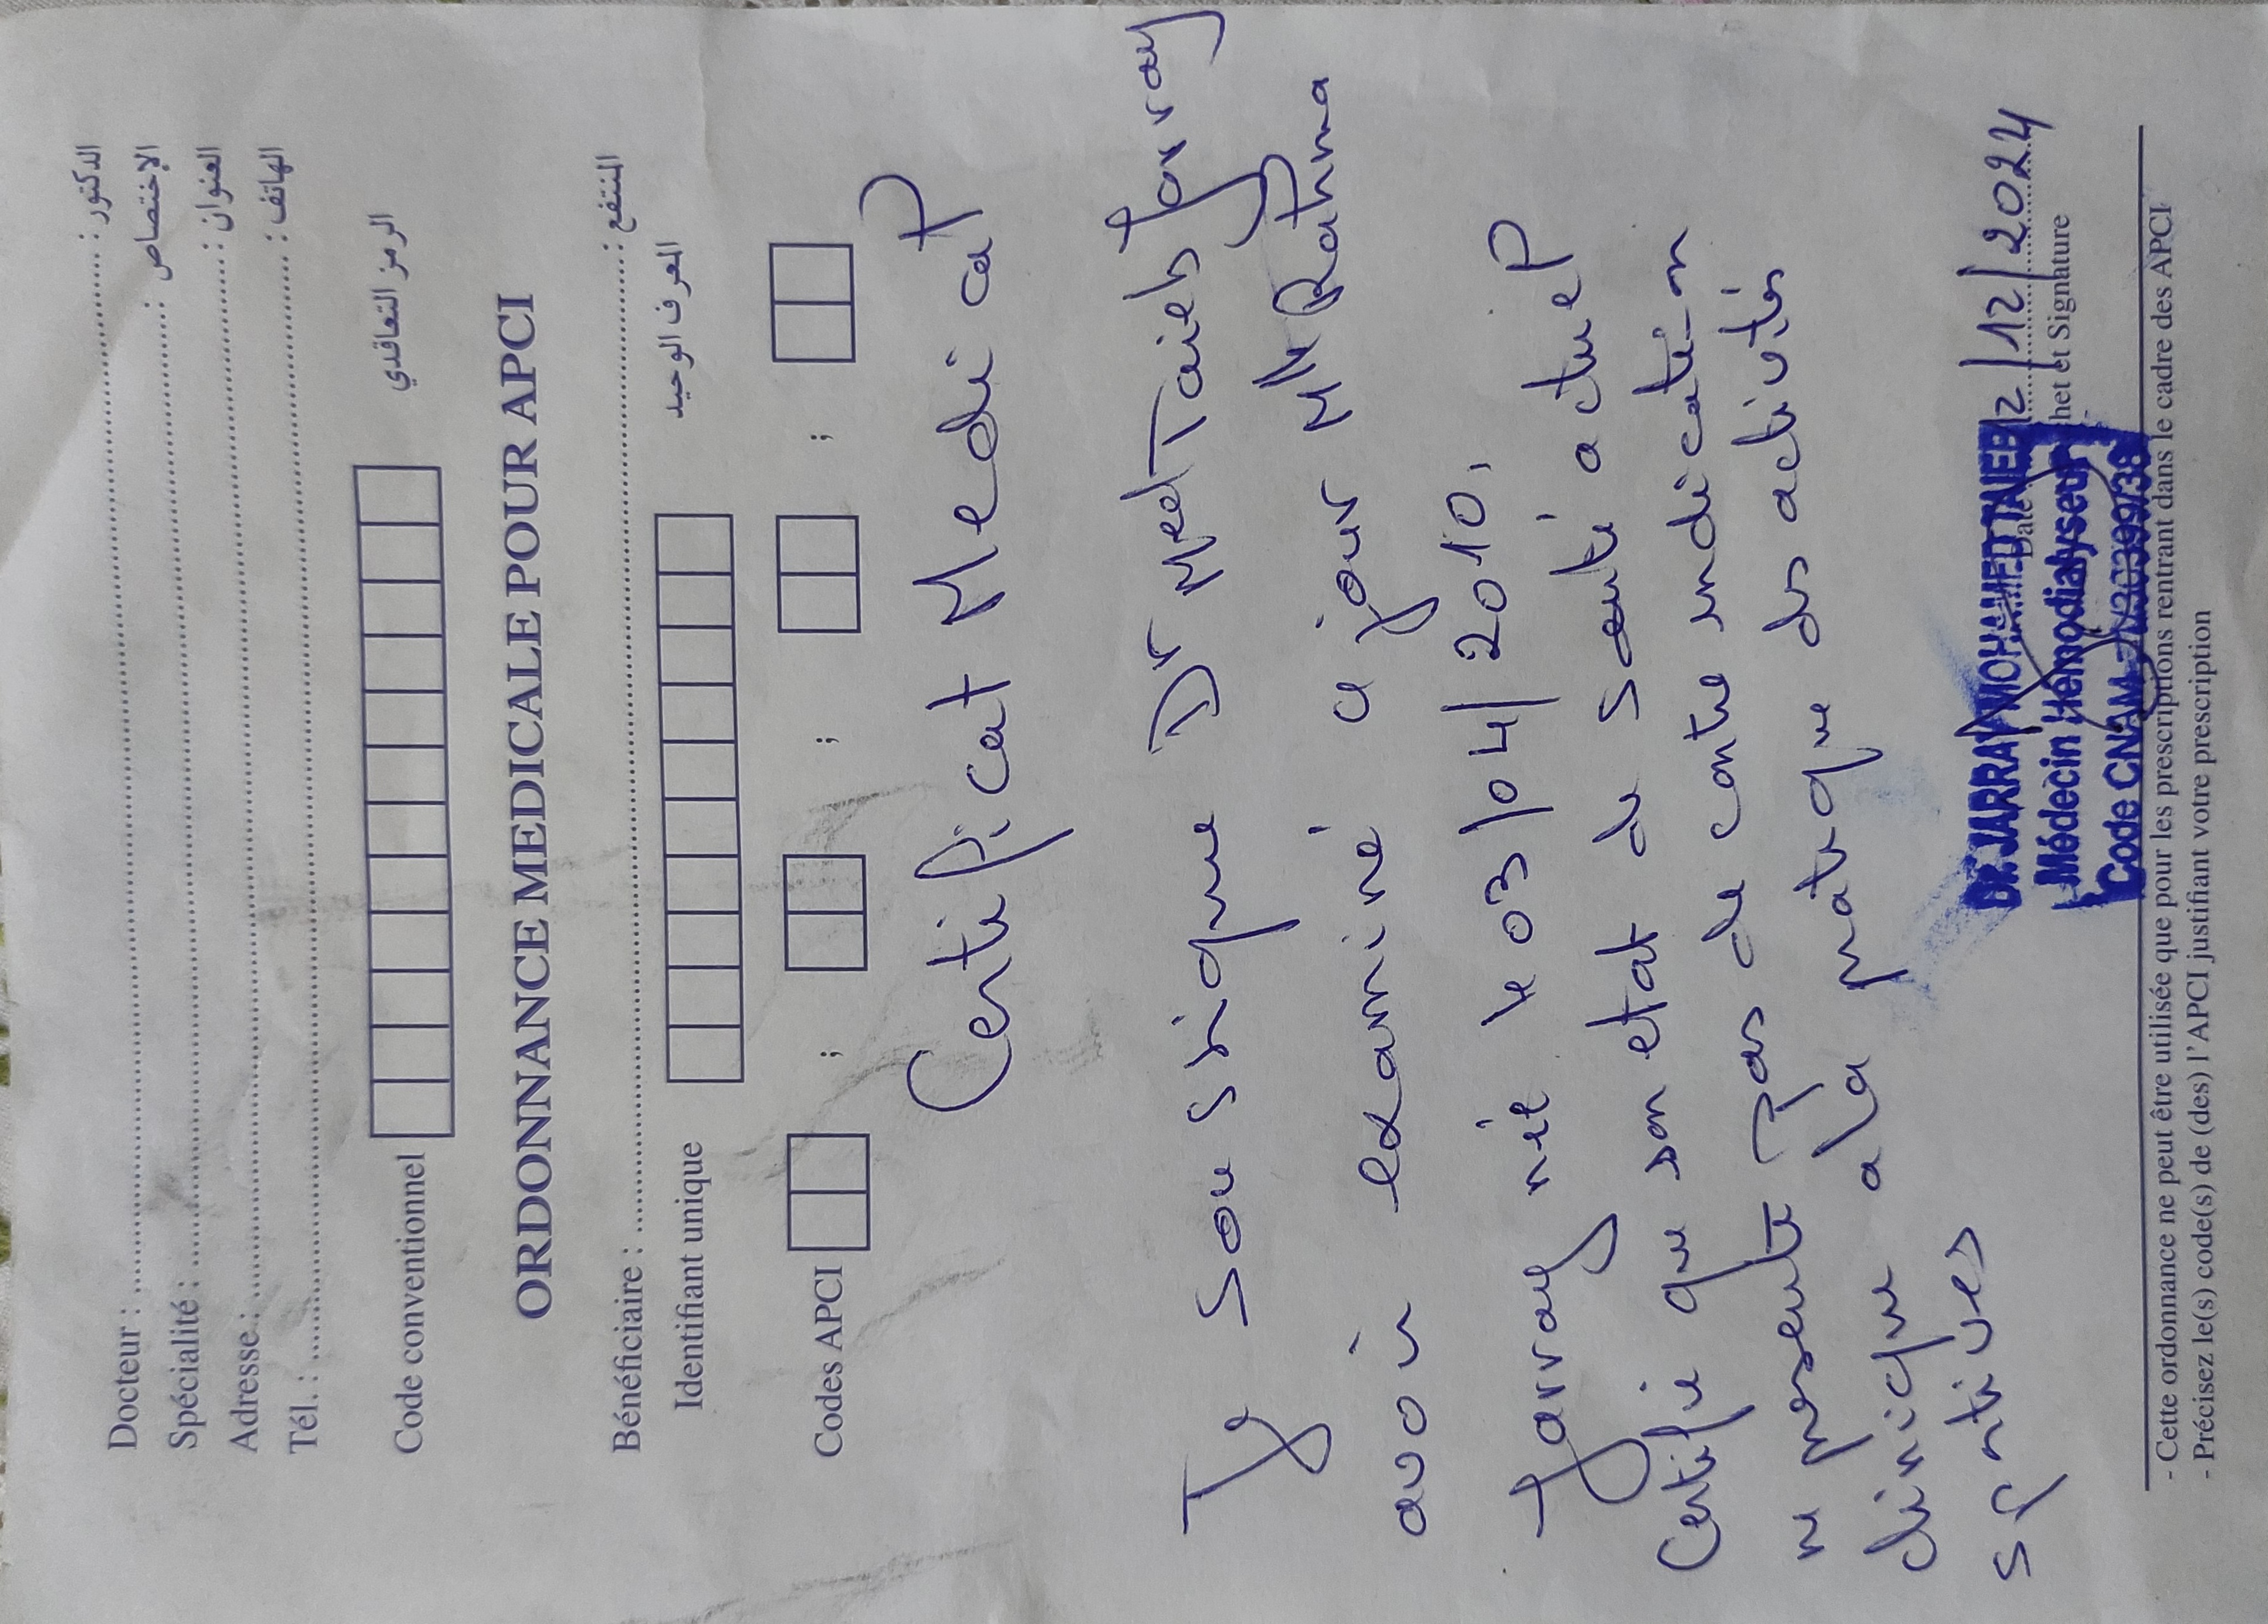 Docteur : الدكتور :
Spécialité : الإختصاص :
Adresse : العنوان :
Tél. : الهاتف :
Code conventionnel الرمز التعاقدي
ORDONNANCE MEDICALE POUR APCI
Bénéficiaire : المنتفع :
Identifiant unique المعرف الوحيد
Codes APCI ; ; ;
Certificat Medical
Je sous signe Dr Med Taieb Jarray
avoir examiné a jour Rahma
Jarray née le 03/04/2010.
Certifie que son etat de santé actuel
ne presente pas de contre indication
clinique a la pratique des activités
sportives
12/12/2024
Dr. JARRAY MOHAMED TAIEB
Date
het et Signature
Médecin Hémodialyseur
Code CNAM
- Cette ordonnance ne peut être utilisée que pour les prescriptions rentrant dans le cadre des APCI
- Précisez le(s) code(s) de (des) l'APCI justifiant votre prescription